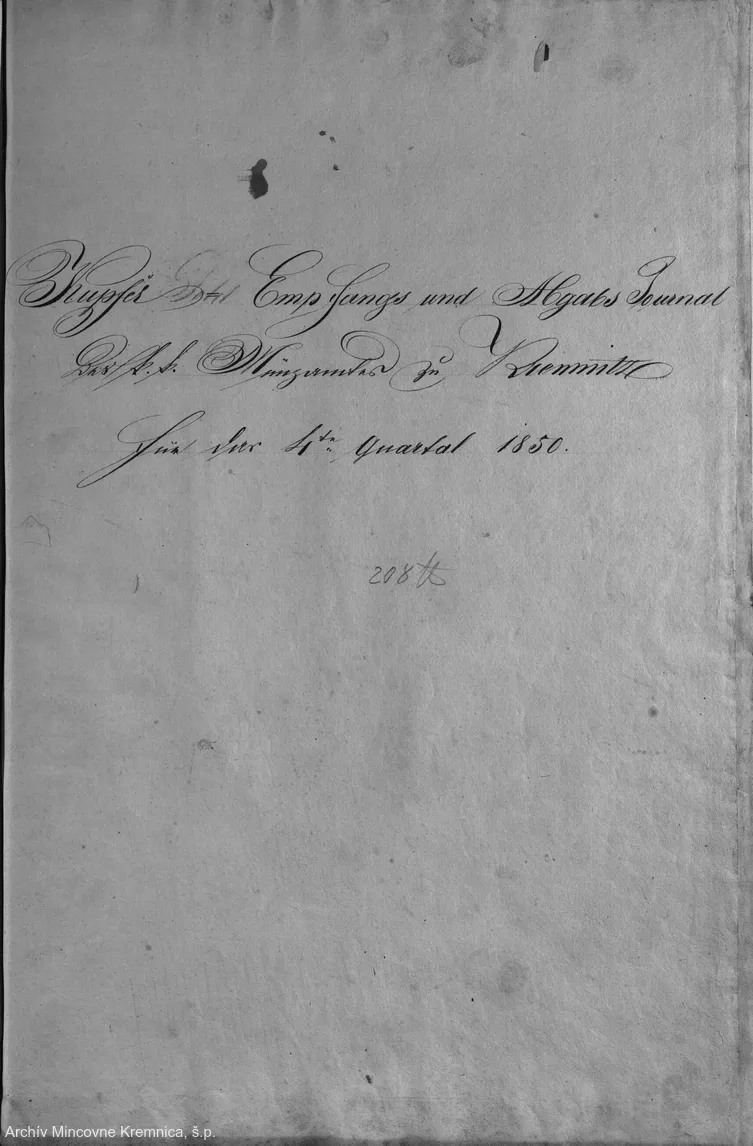 Kupfer Empfangs und Abgabs Journal
Des k. k. Münzamtes zu Kremnitz
Für das 4te Quartal 1850.
208 ℔
Archív Mincovne Kremnica, š.p.